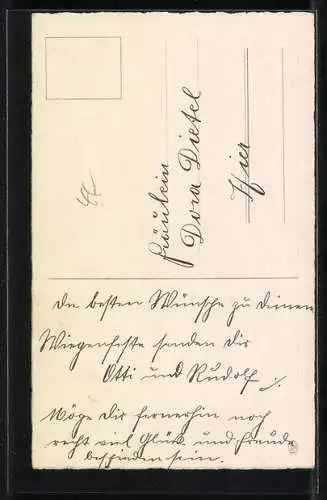 Fräulein
Dora Dietel
Hier
Die besten Wünsche zu Deinem
Wiegenfeste senden dir
Otti und Rudolf
Möge dir fernerhin noch
recht viel Glück und Freude
beschieden sein.